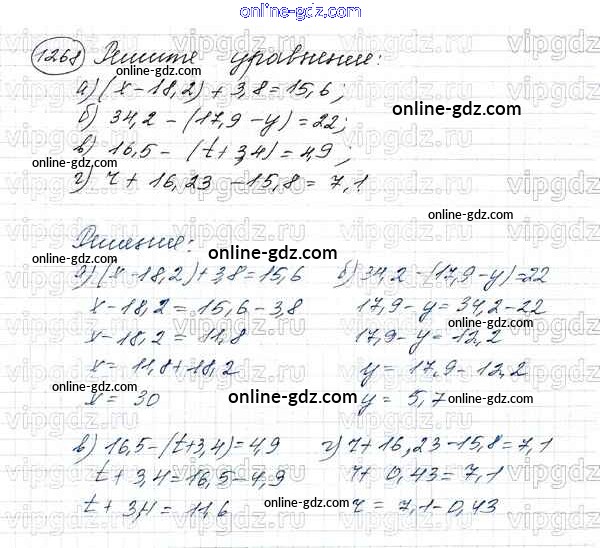 online-gdz.com
1268 Решите уравнение:
online-gdz.com
а) (x-18,2)+3,8=15,6;
б) 34,2-(17,9-y)=22;
online-gdz.com
в) 16,5-(t+3,4)=4,9;
online-gdz.com
г) r+16,23-15,8=7,1
Решение:
online-gdz.com
а) (x-18,2)+3,8=15,6
x-18,2=15,6-3,8
x-18,2=11,8
x=11,8+18,2
x=30
б) 34,2-(17,9-y)=22
17,9-y=34,2-22
online-gdz.com
17,9-y=12,2
y=17,9-12,2
y=5,7
online-gdz.com
online-gdz.com
online-gdz.com
в) 16,5-(t+3,4)=4,9
t+3,4=16,5-4,9
t+3,4=11,6
online-gdz.com
г) r+16,23-15,8=7,1
r+0,43=7,1
r=7,1-0,43
online-gdz.com
vipgdz.ru